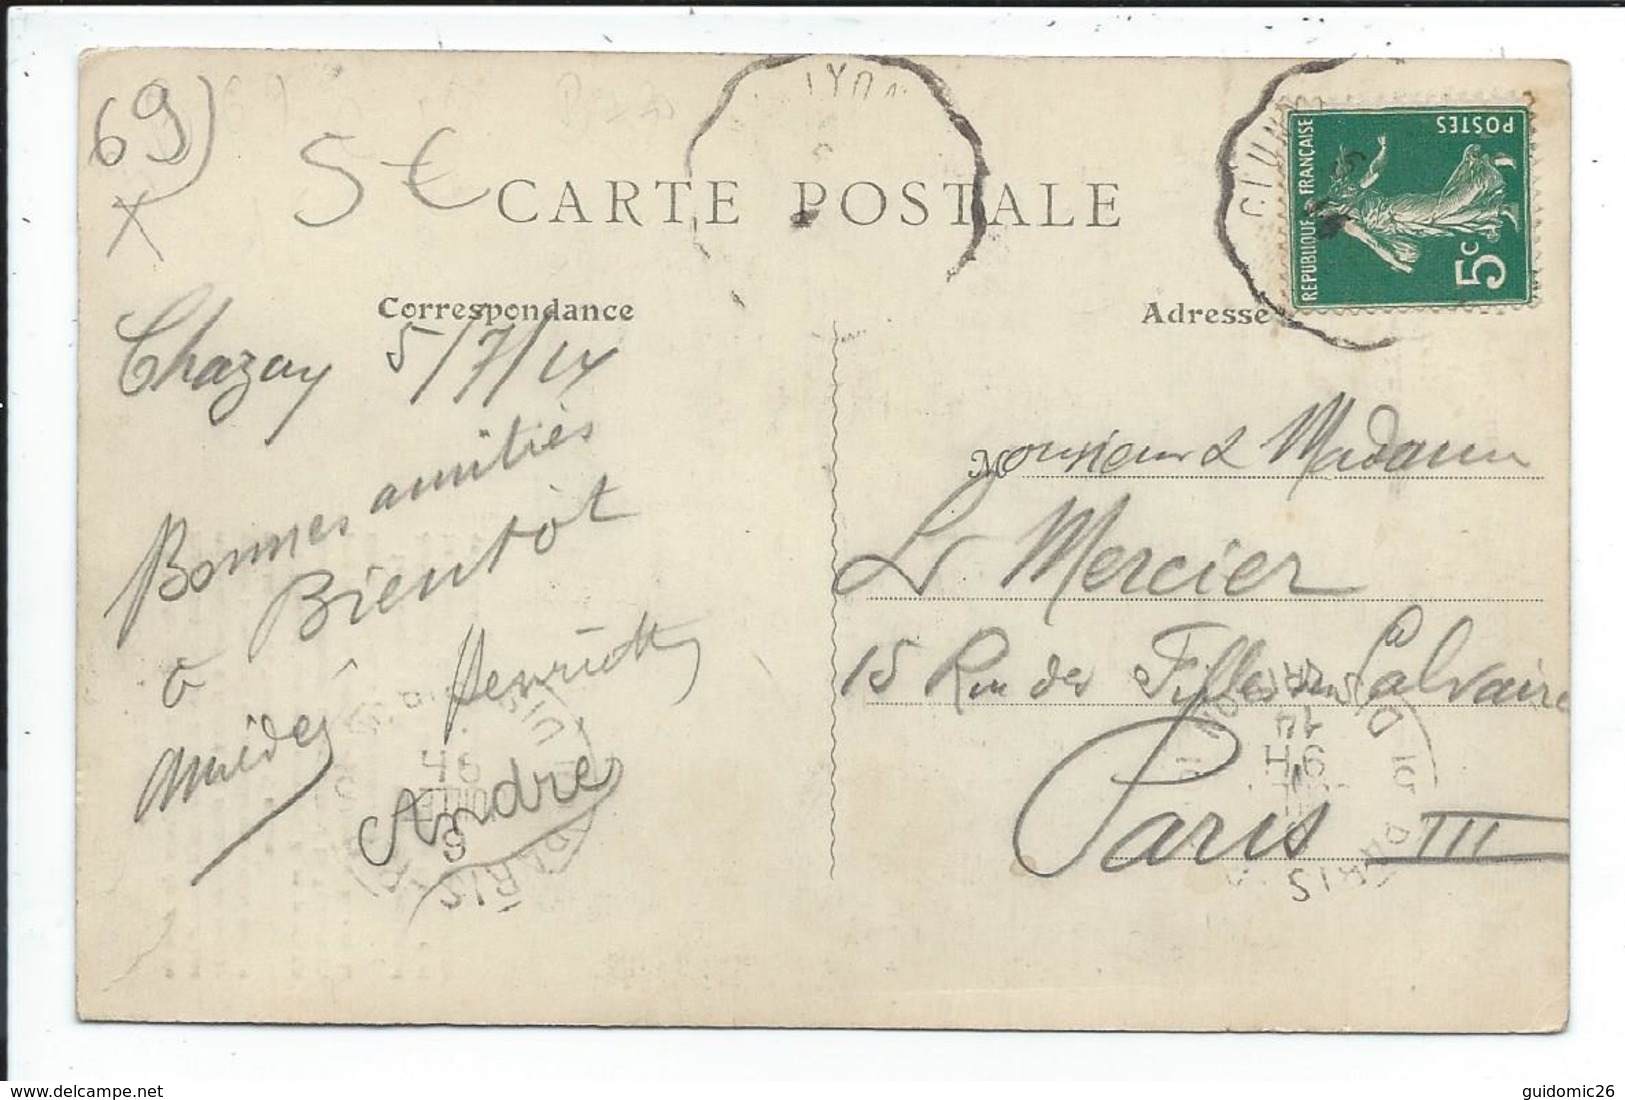 69)
5€
LYON
CLUN
CARTE POSTALE
POSTES
REPUBLIQUE FRANÇAISE
5c
Correspondance
Adresse
Chazay 5/7/14
Bonnes amitiés
à Bientôt
Amédée Henriette
André
Monsieur & Madame
Le Mercier
15 Rue des Filles du Calvaire
Paris III
PARIS
14
PARIS
www.delcampe.net
guidomic26